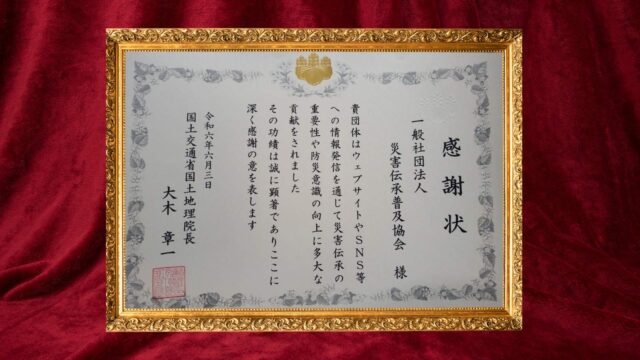 感謝状
一般社団法人
災害伝承普及協会 様
貴団体はウェブサイトやSNS等
への情報発信を通じて災害伝承の
重要性や防災意識の向上に多大な
貢献をされました
その功績は誠に顕著でありここに
深く感謝の意を表します
令和六年六月三日
国土交通省国土地理院長
大木 章一